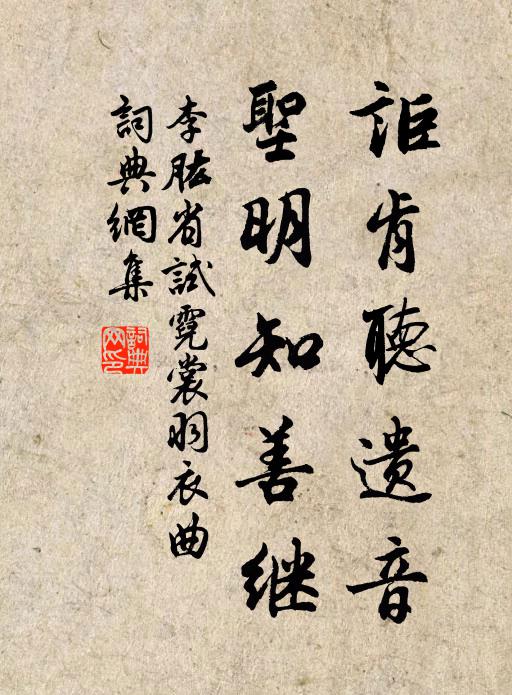 詎肯聽遺音
聖明知善继
李肱省試霓裳羽衣曲
詞典網集
詞典網印